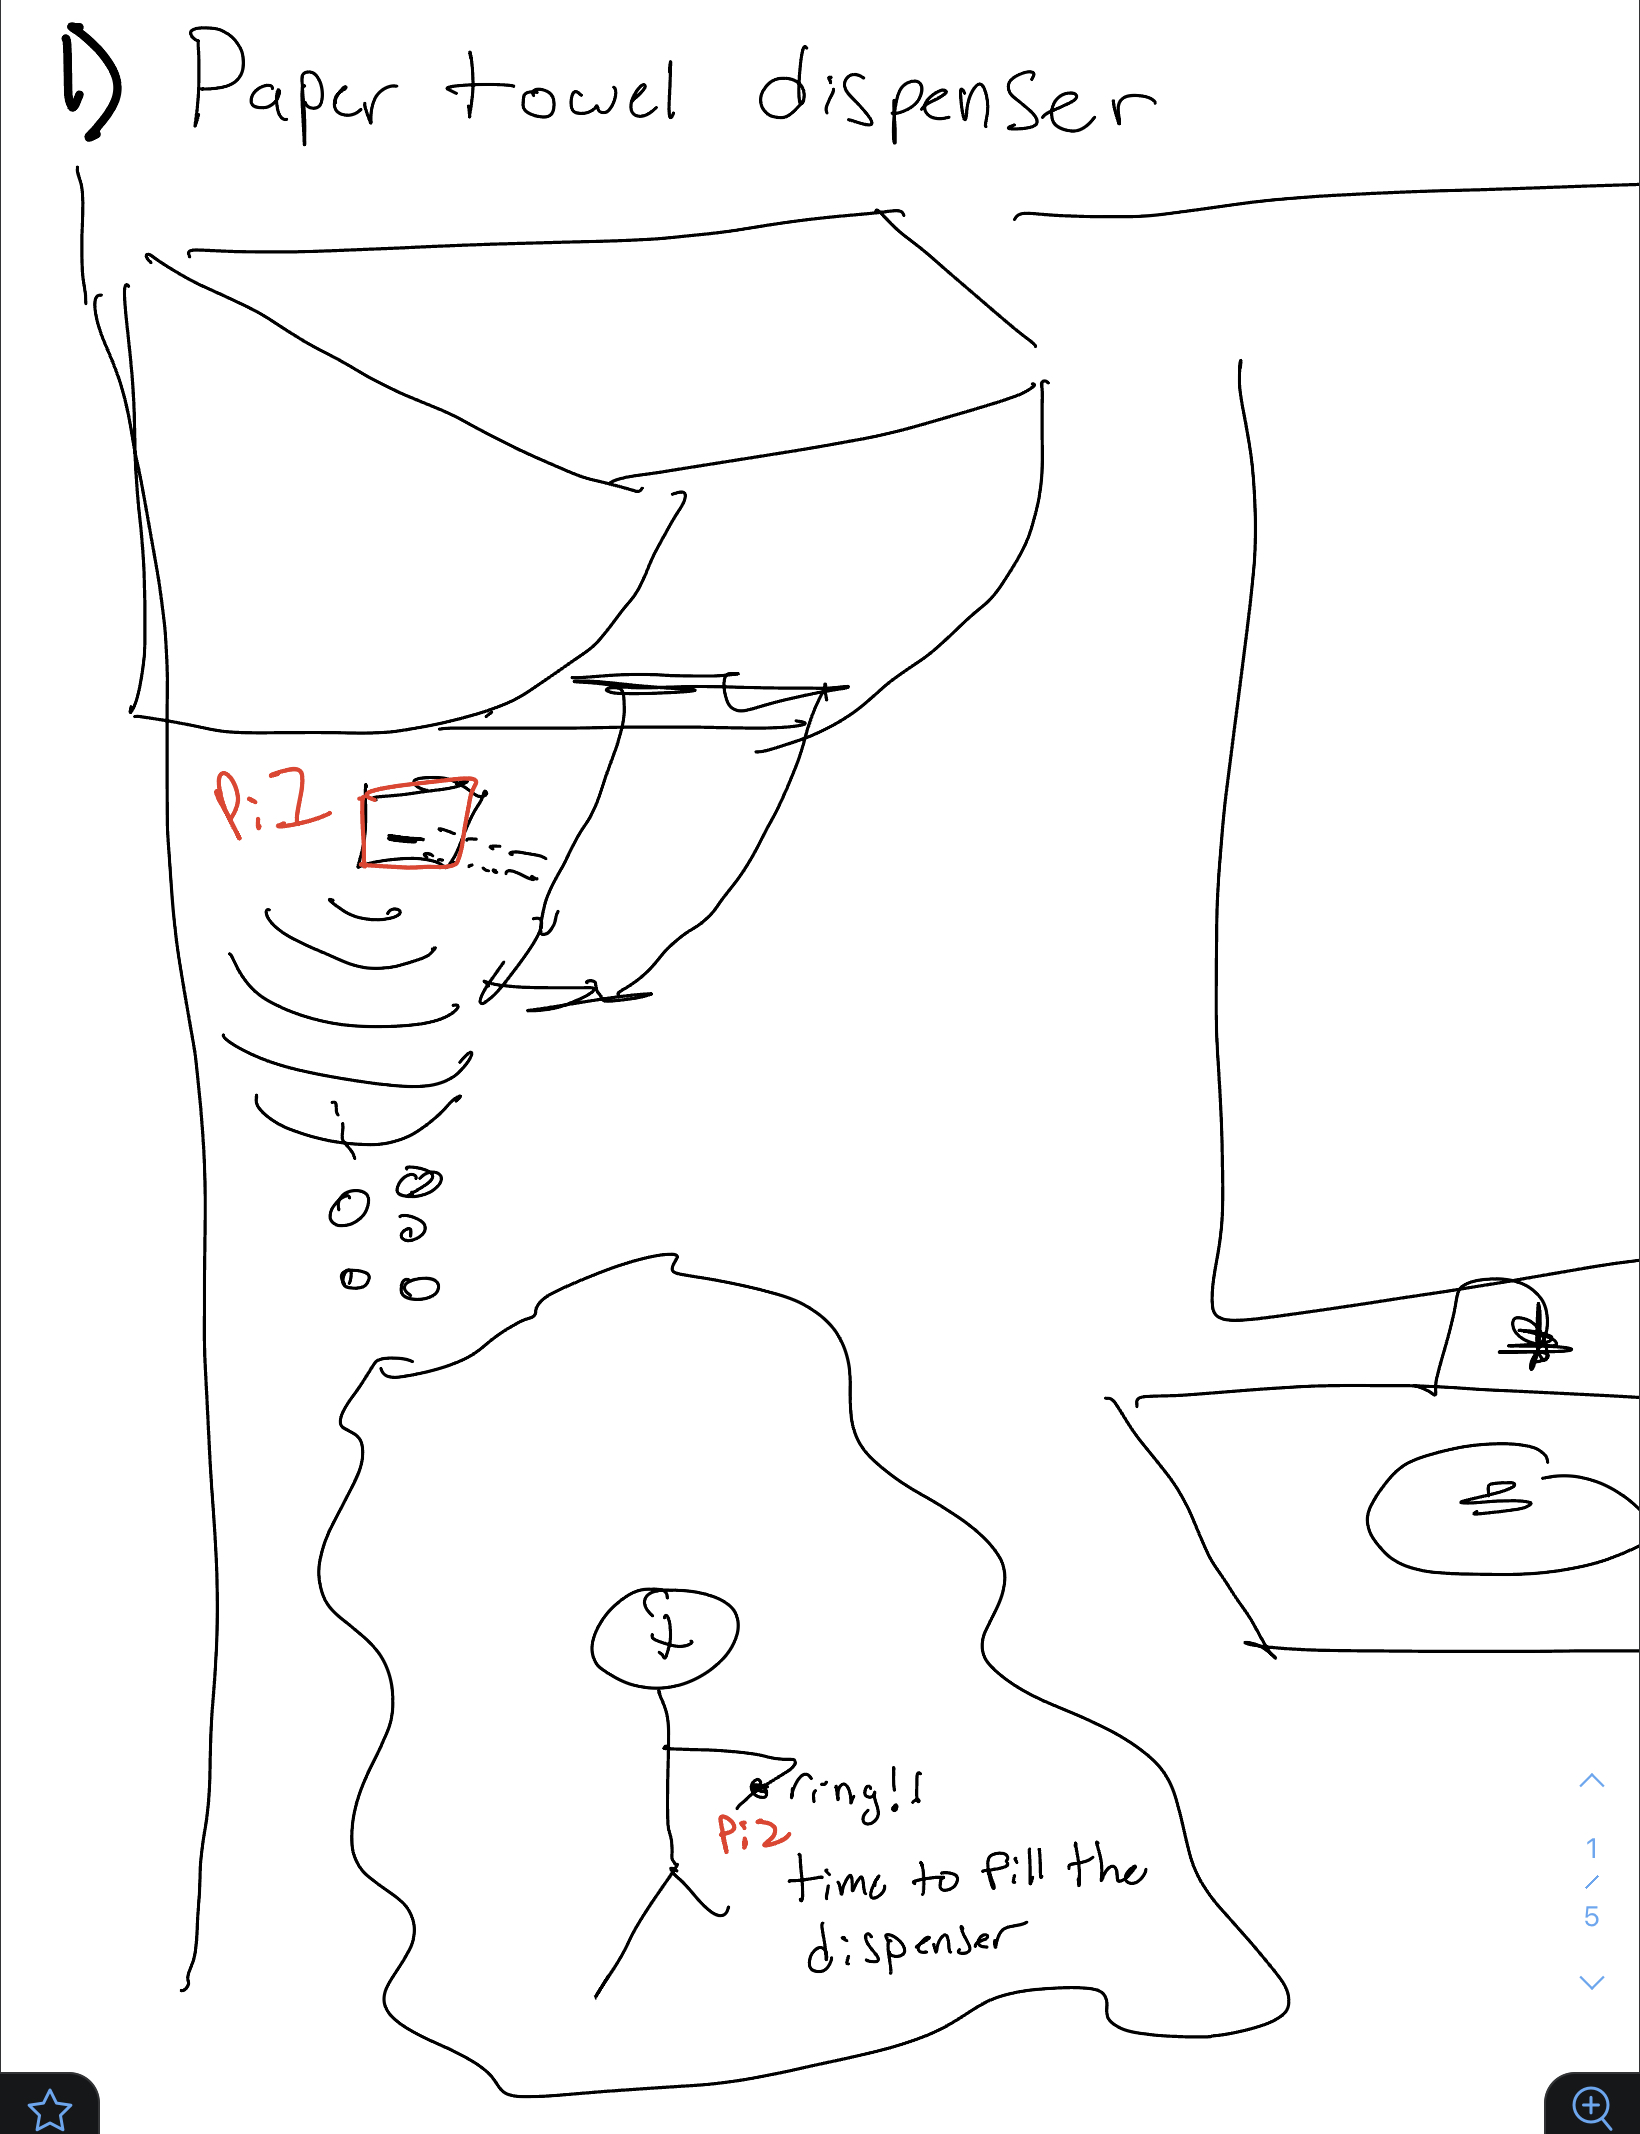 1) Paper towel dispenser
Pi1
ring!!
Pi2
time to fill the
dispenser
1
/
5